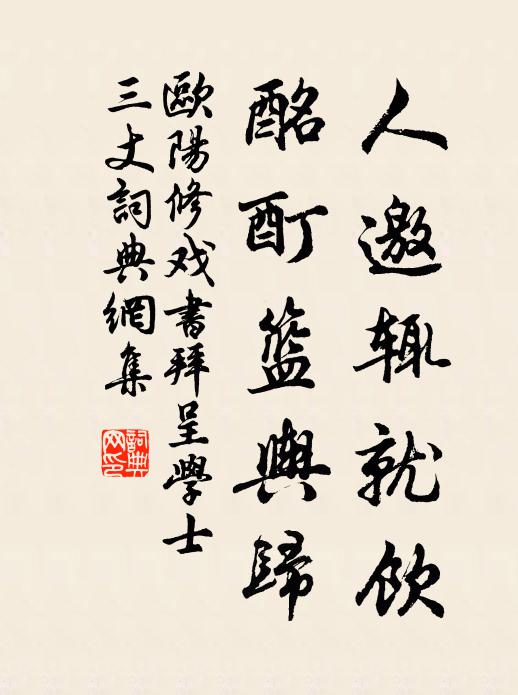 人邀辄就飲
酩酊籃輿歸
歐陽修戏書拜呈學士
三丈詞典網集
詞典网印